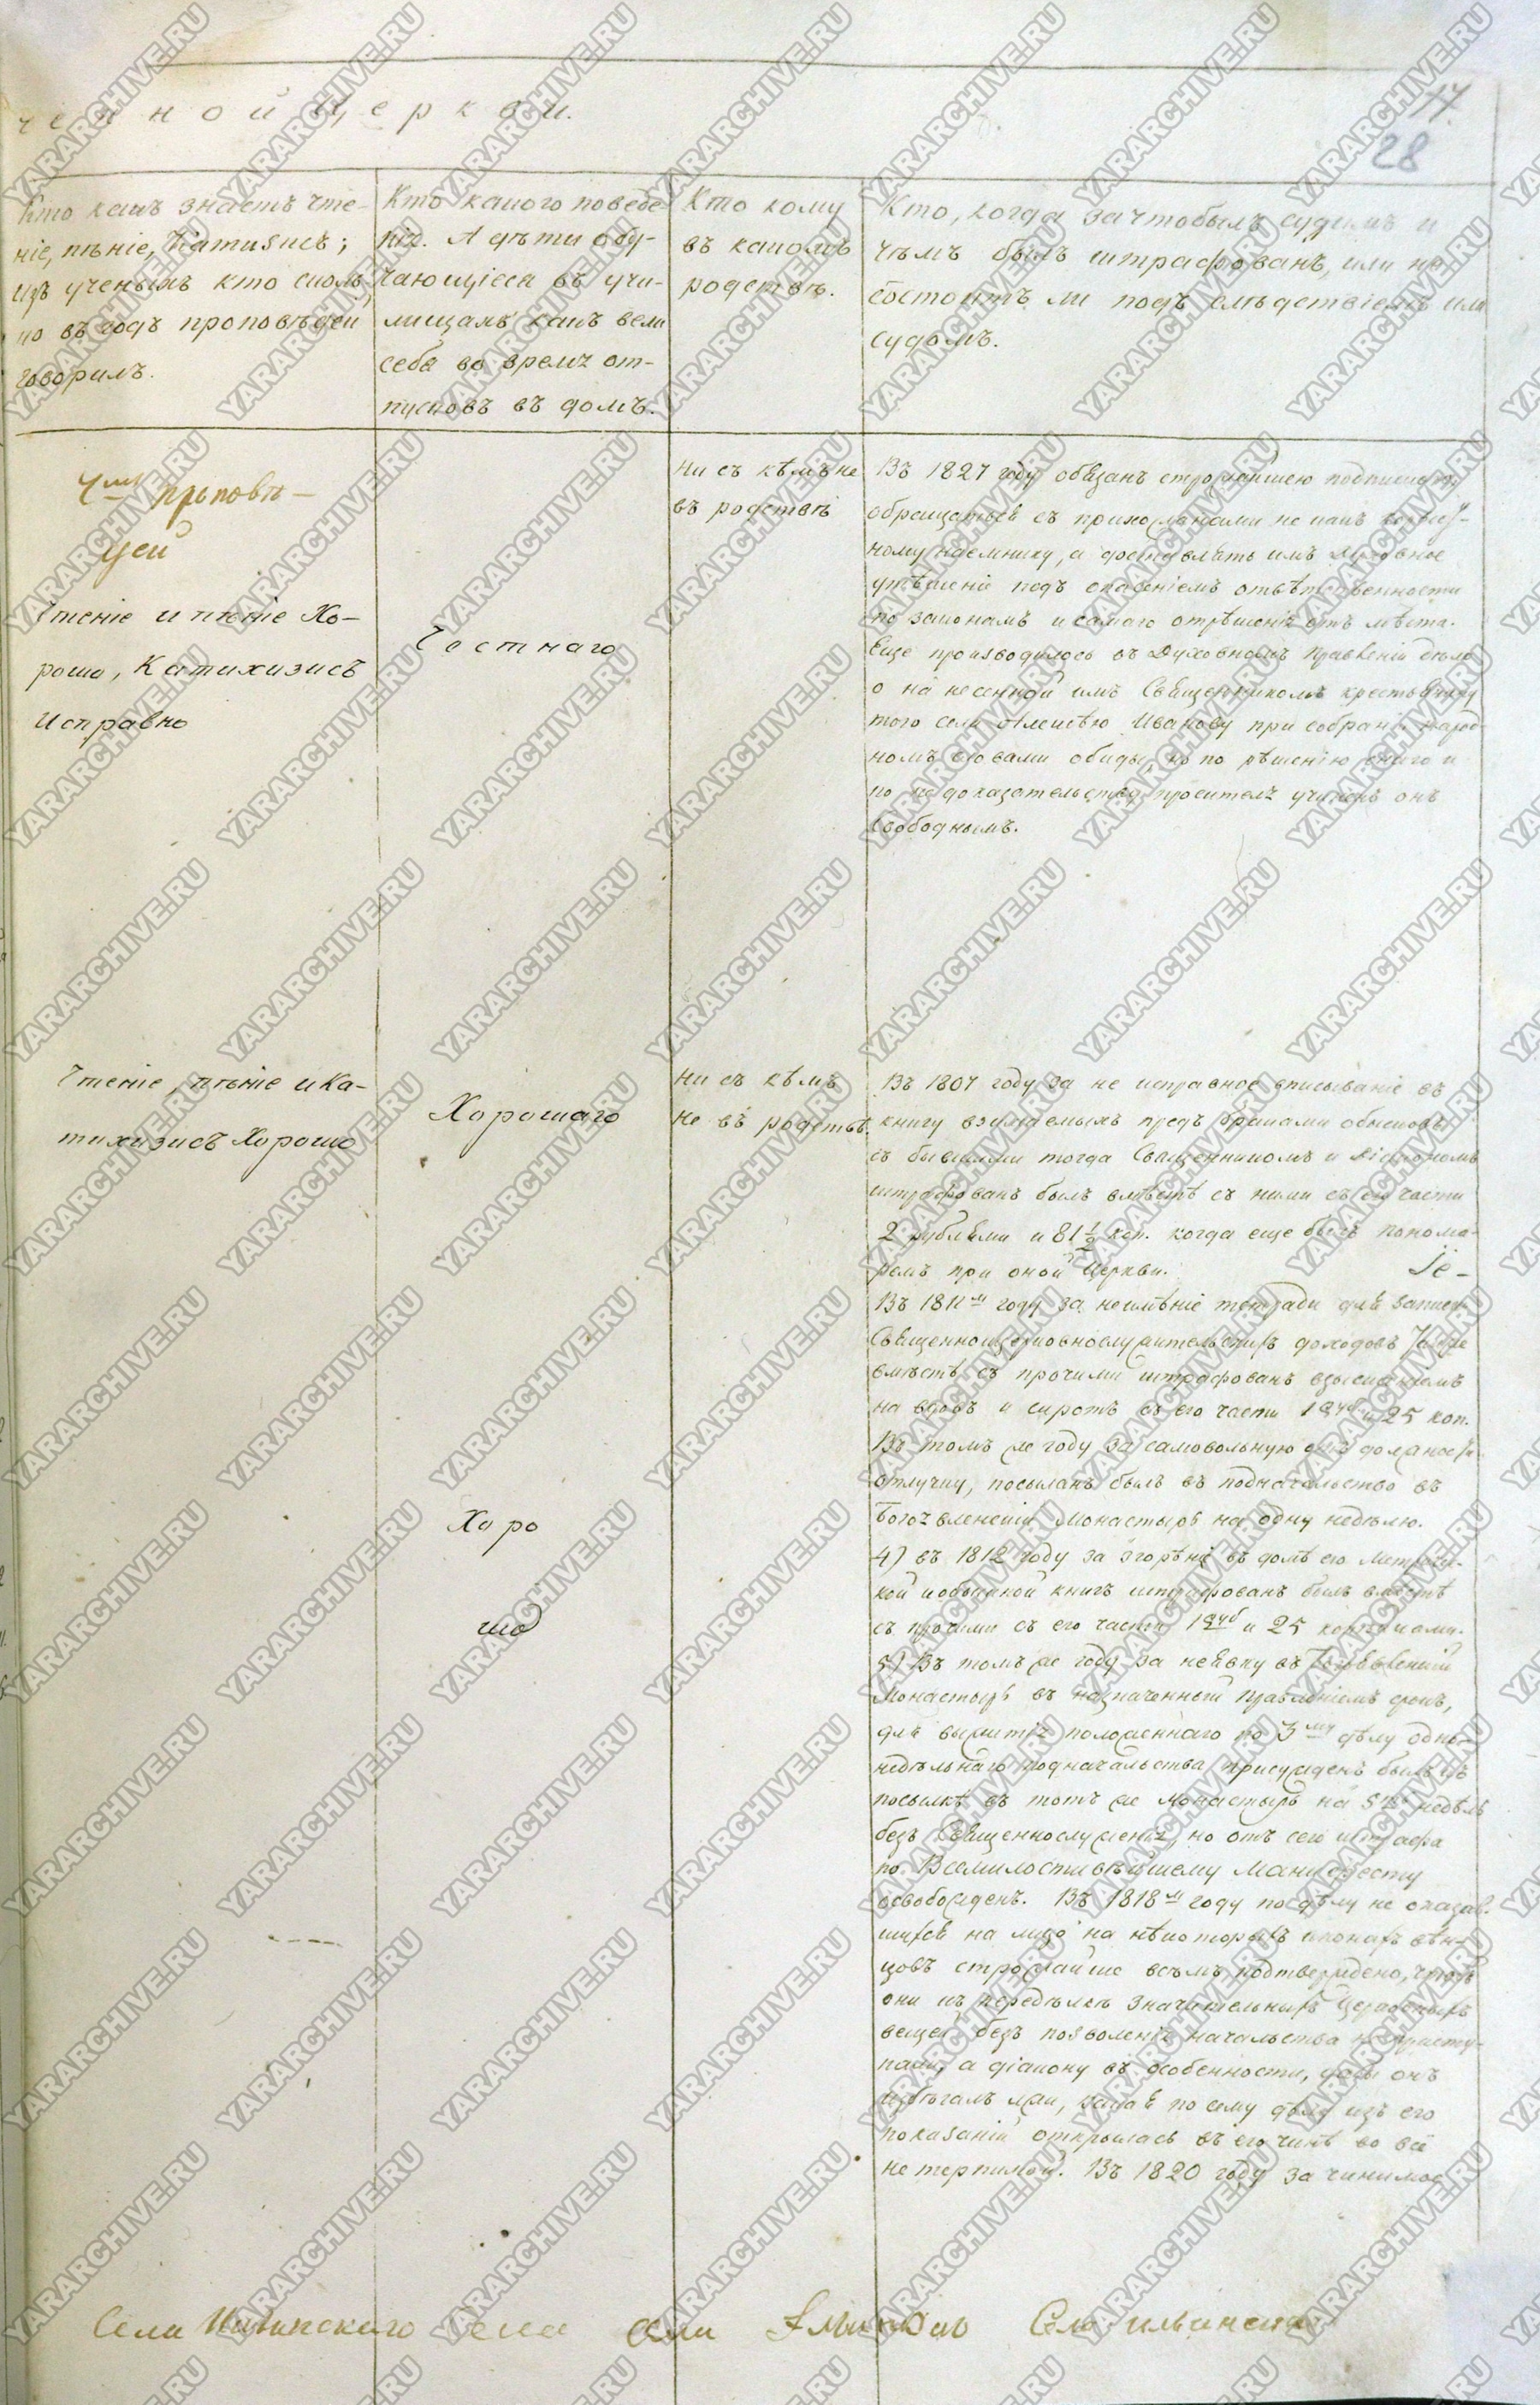 ченной церкви.
17.
28
Кто какъ знаетъ чте-
ніе, пѣніе, Катизисъ;
изъ ученыхъ кто сколь-
ко въ годъ проповѣдей
говорилъ.
Кто какого поведе-
нія. А дѣти обу-
чающіеся въ учи-
лищахъ какъ вели
себя во время от-
пусковъ въ домъ.
Кто кому
въ какомъ
родствѣ.
Кто, когда за что былъ судимъ и
чѣмъ былъ штрафованъ, или не
состоитъ ли подъ слѣдствіемъ или
судомъ.
проповѣ-
дей
Чтеніе и пѣніе Хо-
рошо, Катихизисъ
Исправно
Честнаго
Ни съ кѣмъ не
въ родствѣ
Въ 1827 году обязанъ строжайшею подпискою
обращаться съ прихожанами не какъ
ному наемнику, а доставлять имъ духовное
утѣшеніе подъ опасеніемъ отвѣтственности
по законамъ и самаго отрѣшенія отъ мѣста.
Еще производилось въ Духовномъ Правленіи дѣло
о нанесенной имъ Священникомъ крестьянину
того села Алексѣю Иванову при собраніи народ-
номъ словами обиды, но по рѣшенію онаго и
по недоказательству просителя учиненъ онъ
Свободнымъ.
Чтеніе, пѣніе и Ка-
тихизисъ Хорошо
Хорошаго
Ни съ кѣмъ
не въ родствѣ
Въ 1807 году за не исправное вписываніе въ
книгу взимаемыхъ предъ браками обысковъ
съ бывшими тогда Священникомъ и Діакономъ
штрафованъ былъ вмѣстѣ съ ними съ его части
2 рублями и 81 1/2 коп. когда еще былъ понома-
ремъ при оной Церкви.
Је-
Въ 1811м году за неимѣніе тетради для записи
Священноцерковнослужительскихъ доходовъ
вмѣстѣ съ прочими штрафованъ взысканіемъ
на вдовъ и сиротъ съ его части 1 руб и 25 коп.
Въ томъ же году за самовольную отъ должности
отлучку, посыланъ былъ въ подначальство въ
Богоявленскій Монастырь на одну недѣлю.
4) въ 1812 году за згорѣніе въ домѣ его метричес-
кой и обыскной книгъ штрафованъ былъ вмѣстѣ
съ прочими съ его части 1 руб и 25 копѣйками.
5) Въ томъ же году за неявку въ Богоявленскій
Монастырь въ назначенный Правленіемъ срокъ,
для выжитія положеннаго по 3му дѣлу одно-
недѣльнаго подначальства присужденъ былъ къ
посылкѣ въ тотъ же Монастырь на недѣль
безъ Священнослуженія, но отъ сего штрафа
по Всемилостивѣйшему Манифесту
освобожденъ. Въ 1818м году по дѣлу не оказав-
шихся на лицо на нѣкоторыхъ иконахъ вѣн-
цовъ строжайше всѣмъ подтверждено, чтобъ
они къ передѣлкѣ значительныхъ Церковныхъ
вещей безъ позволенія начальства не присту-
пали, а діакону въ особенности, дабы онъ
избѣгалъ лжи, какая по сему дѣлу изъ его
показаній открылась въ его чинѣ во все
не терпимой. Въ 1820 году за чинимое
Хоро
шо
Села Ильинскаго